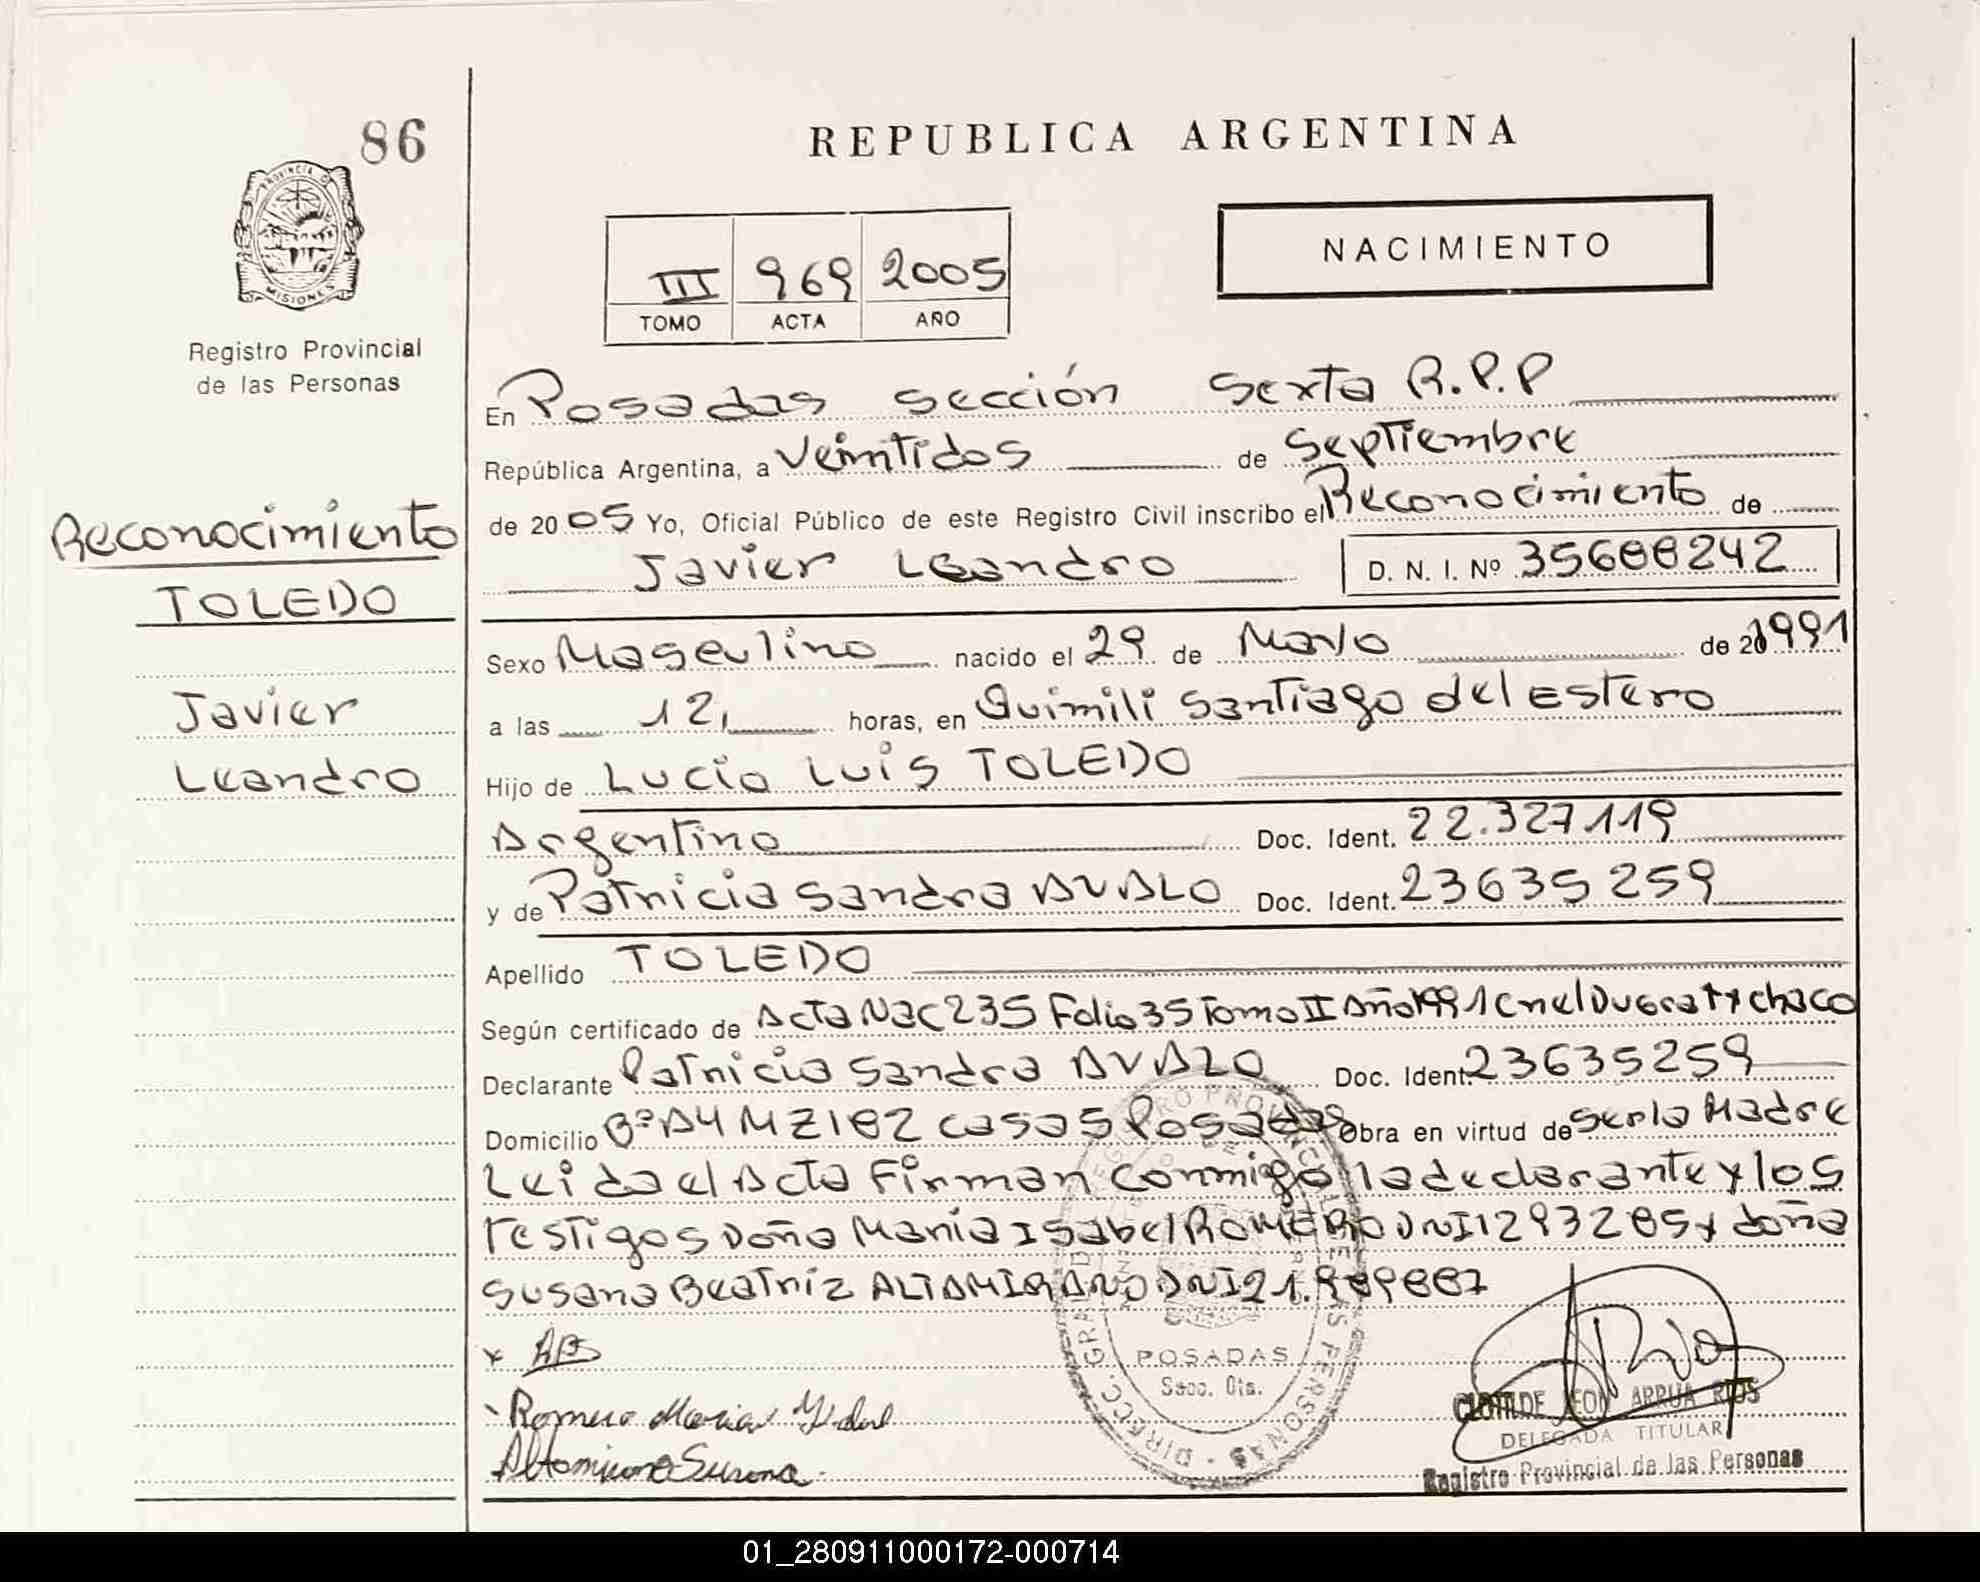 86
REPUBLICA ARGENTINA
PROVINCIA D
MISIONES
NACIMIENTO
III 969 2005
TOMO ACTA AÑO
Registro Provincial
de las Personas
En Posadas sección Sexta R.P.P
República Argentina, a Veintidos de Septiembre
de 2005 Yo, Oficial Público de este Registro Civil inscribo el Reconocimiento de
Reconocimiento
Javier Leandro D. N. I. Nº 35688242
TOLEDO
Sexo Masculino nacido el 29 de Mayo de 1991
Javier
a las 12, horas, en Quimili Santiago del Estero
Leandro
Hijo de Lucio Luis TOLEDO
Argentino Doc. Ident. 22.327.119
y de Patricia Sandra AVALO Doc. Ident. 23635259
Apellido TOLEDO
Según certificado de Acta Nac 235 Folio 35 Tomo II Año 1991 Cnel Dugraty Chaco
Declarante Patricia Sandra AVALO Doc. Ident. 23635259
Domicilio Bº A4 MZ 182 casa 5 Posadas Obra en virtud de ser la Madre
Leida el Acta Firman conmigo la declarante y los
testigos Doña Maria Isabel ROMERO DNI 12973285 y doña
Susana Beatriz ALTAMIRANO DNI 21.989887
Romero Maria Isabel
Altamirano Susana
POSADAS
Secc. 6ta.
CLOTILDE LEON ARRUA RIOS
DELEGADA TITULAR
Registro Provincial de las Personas
01_280911000172-000714